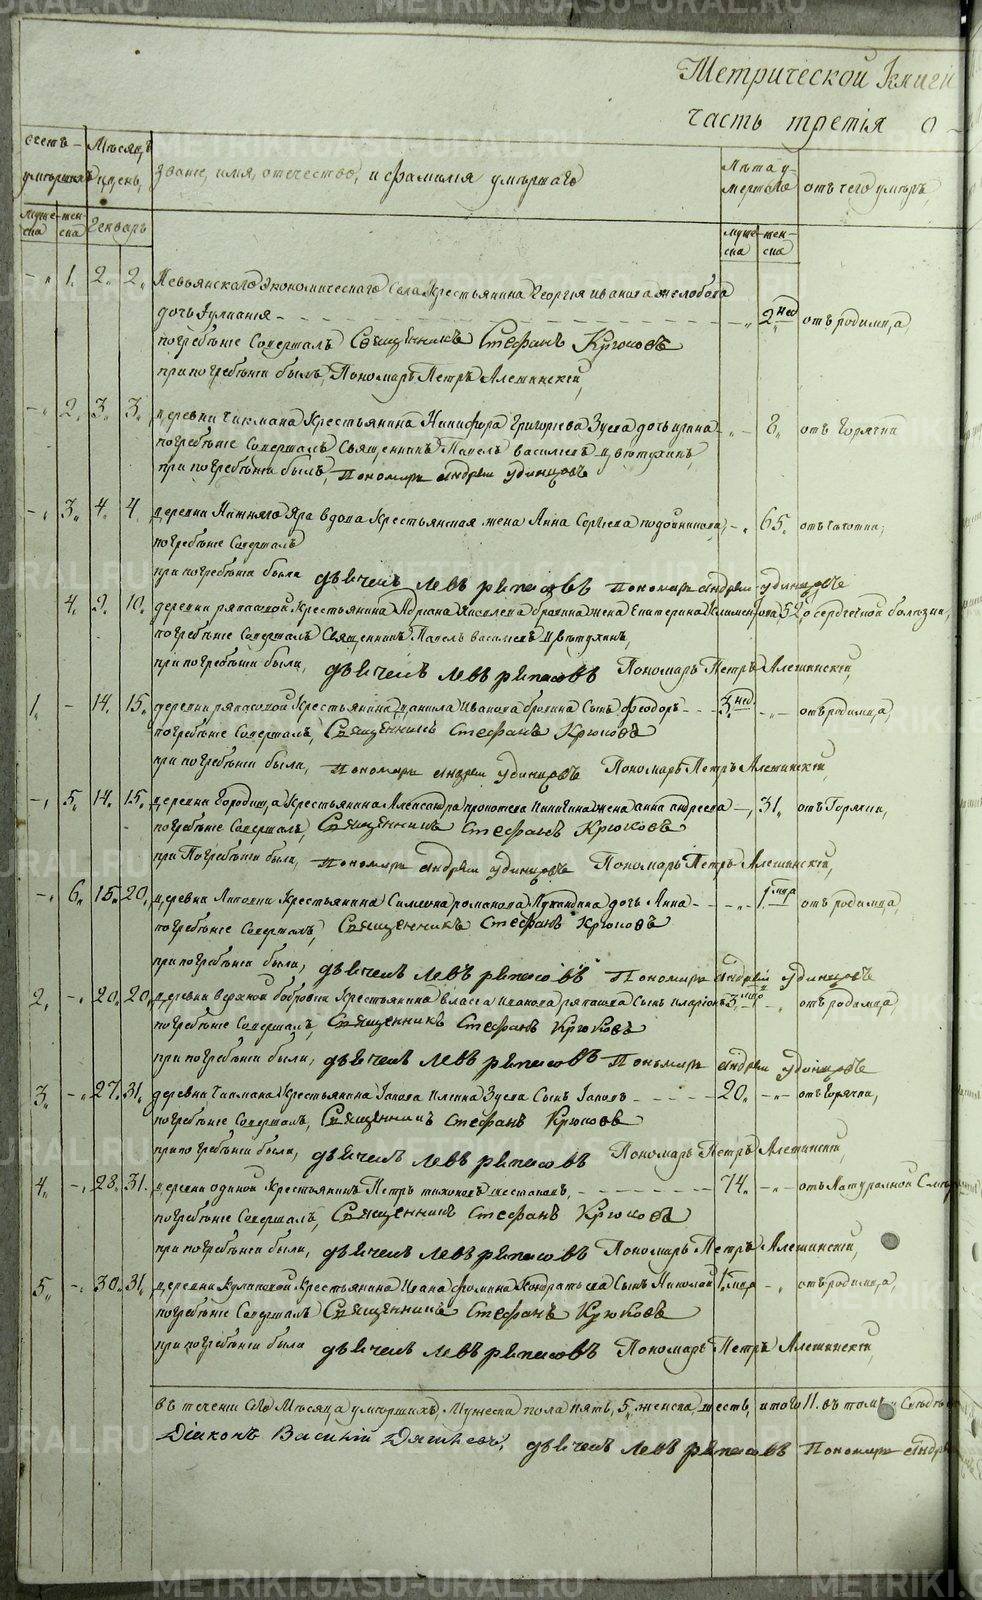 Метрической Книги
часть третія о
счетъ умершихъ
Мѣсяцъ и день,
званіе, имя, отечество, и фамилія умершаго
Лѣта умершаго
отъ чего умеръ,
муже-ска
жен-ска
Генварь
муже-ска
жен-ска
-„ 1. 2. 2. Невьянскаго Экономическаго Села Крестьянина Георгія Иванова Желобова
дочь Іулианія - - - -„ 2 нед отъ родимца
погребеніе Совершалъ Священникъ Стефанъ Крюковъ
при погребеніи былъ, Пономарь Петръ Алешинскій,
-„ 2. 3. 3. деревни Чикмана Крестьянина Никифора Григорьева Зуева дочь Ирина -„ 8, отъ Горячки
погребеніе Совершалъ Священникъ Павелъ Васильевъ Цвѣтухинъ,
при погребеніи былъ, Пономарь Андрей Удинцовъ
-„ 3. 4. 4. деревни Нижняго Яра вдова Крестьянская жена Анна Сергѣева -„ 65. отъ чахотки;
погребеніе Совершалъ
при погребеніи были дьячекъ Левъ Рѣпасовъ Пономарь Андрей Удинцовъ
4. 9. 10. деревни Ряпасовой Крестьянина Адриана Яковлева жена Екатерина Климентова 52, сердечной болѣзни,
погребеніе Совершалъ Священникъ Павелъ Васильевъ Цвѣтухинъ,
при погребеніи были, дьячекъ Левъ Рѣпасовъ Пономарь Петръ Алешинскій,
1. - 14. 15. деревни Ряпасовой Крестьянина Данила Иванова Сынъ Феодоръ - - 3. нед. -„- отъ родимца,
погребеніе Совершалъ, Священникъ Стефанъ Крюковъ
при погребеніи были, Пономарь Андрей Удинцовъ Пономарь Петръ Алешинскій,
-„ 5. 14. 15. деревни Городища Крестьянина Александра жена Анна Андреева -, 31. отъ Горячки,
погребеніе Совершалъ, Священникъ Стефанъ Крюковъ
при Погребеніи были, Пономарь Андрей Удинцовъ Пономарь Петръ Алешинскій,
-„ 6. 15. 20. деревни Крестьянина Симеона Романова дочь Анна - - -„- 1 мца отъ родимца,
погребеніе Совершалъ, Священникъ Стефанъ Крюковъ
при погребеніи были, дьячекъ Левъ Рѣпасовъ Пономарь Андрей Удинцовъ
2. -„ 20. 20. деревни Верхной Бобровки Крестьянина Власа Иванова Сынъ Иларионъ 3. мца -„- отъ родимца,
погребеніе Совершалъ, Священникъ Стефанъ Крюковъ
при погребеніи были, дьячекъ Левъ Рѣпасовъ Пономарь Андрей Удинцовъ
3. -„ 27. 31. деревни Чикмана Крестьянина Іакова Ильина Зуева Сынъ Іаковъ - - - 20. -„- отъ Горячки,
погребеніе Совершалъ, Священникъ Стефанъ Крюковъ
при погребеніи были, дьячекъ Левъ Рѣпасовъ Пономарь Петръ Алешинскій,
4. -„ 28. 31. деревни Одиной Крестьянинъ Петръ Тихоновъ Шестаковъ, - - - 74. -„- отъ Натуралной
погребеніе Совершалъ, Священникъ Стефанъ Крюковъ
при погребеніи были, дьячекъ Левъ Рѣпасовъ Пономарь Петръ Алешинскій,
5. -„ 30. 31. деревни Кулаковой Крестьянина Ивана Фомина Кондратьева Сынъ Николай 1. мца -„ отъ родимца,
погребеніе Совершалъ Священникъ Стефанъ Крюковъ
при погребеніи были дьячекъ Левъ Рѣпасовъ Пономарь Петръ Алешинскій,
въ теченіи Сего Мѣсяца умершихъ, Мужеска пола пять, 5, женска, шесть, итого 11. въ томъ и
Діаконъ Василій дьячекъ Левъ Рѣпасовъ Пономарь Андр
METRIKI.GASO-URAL.RU